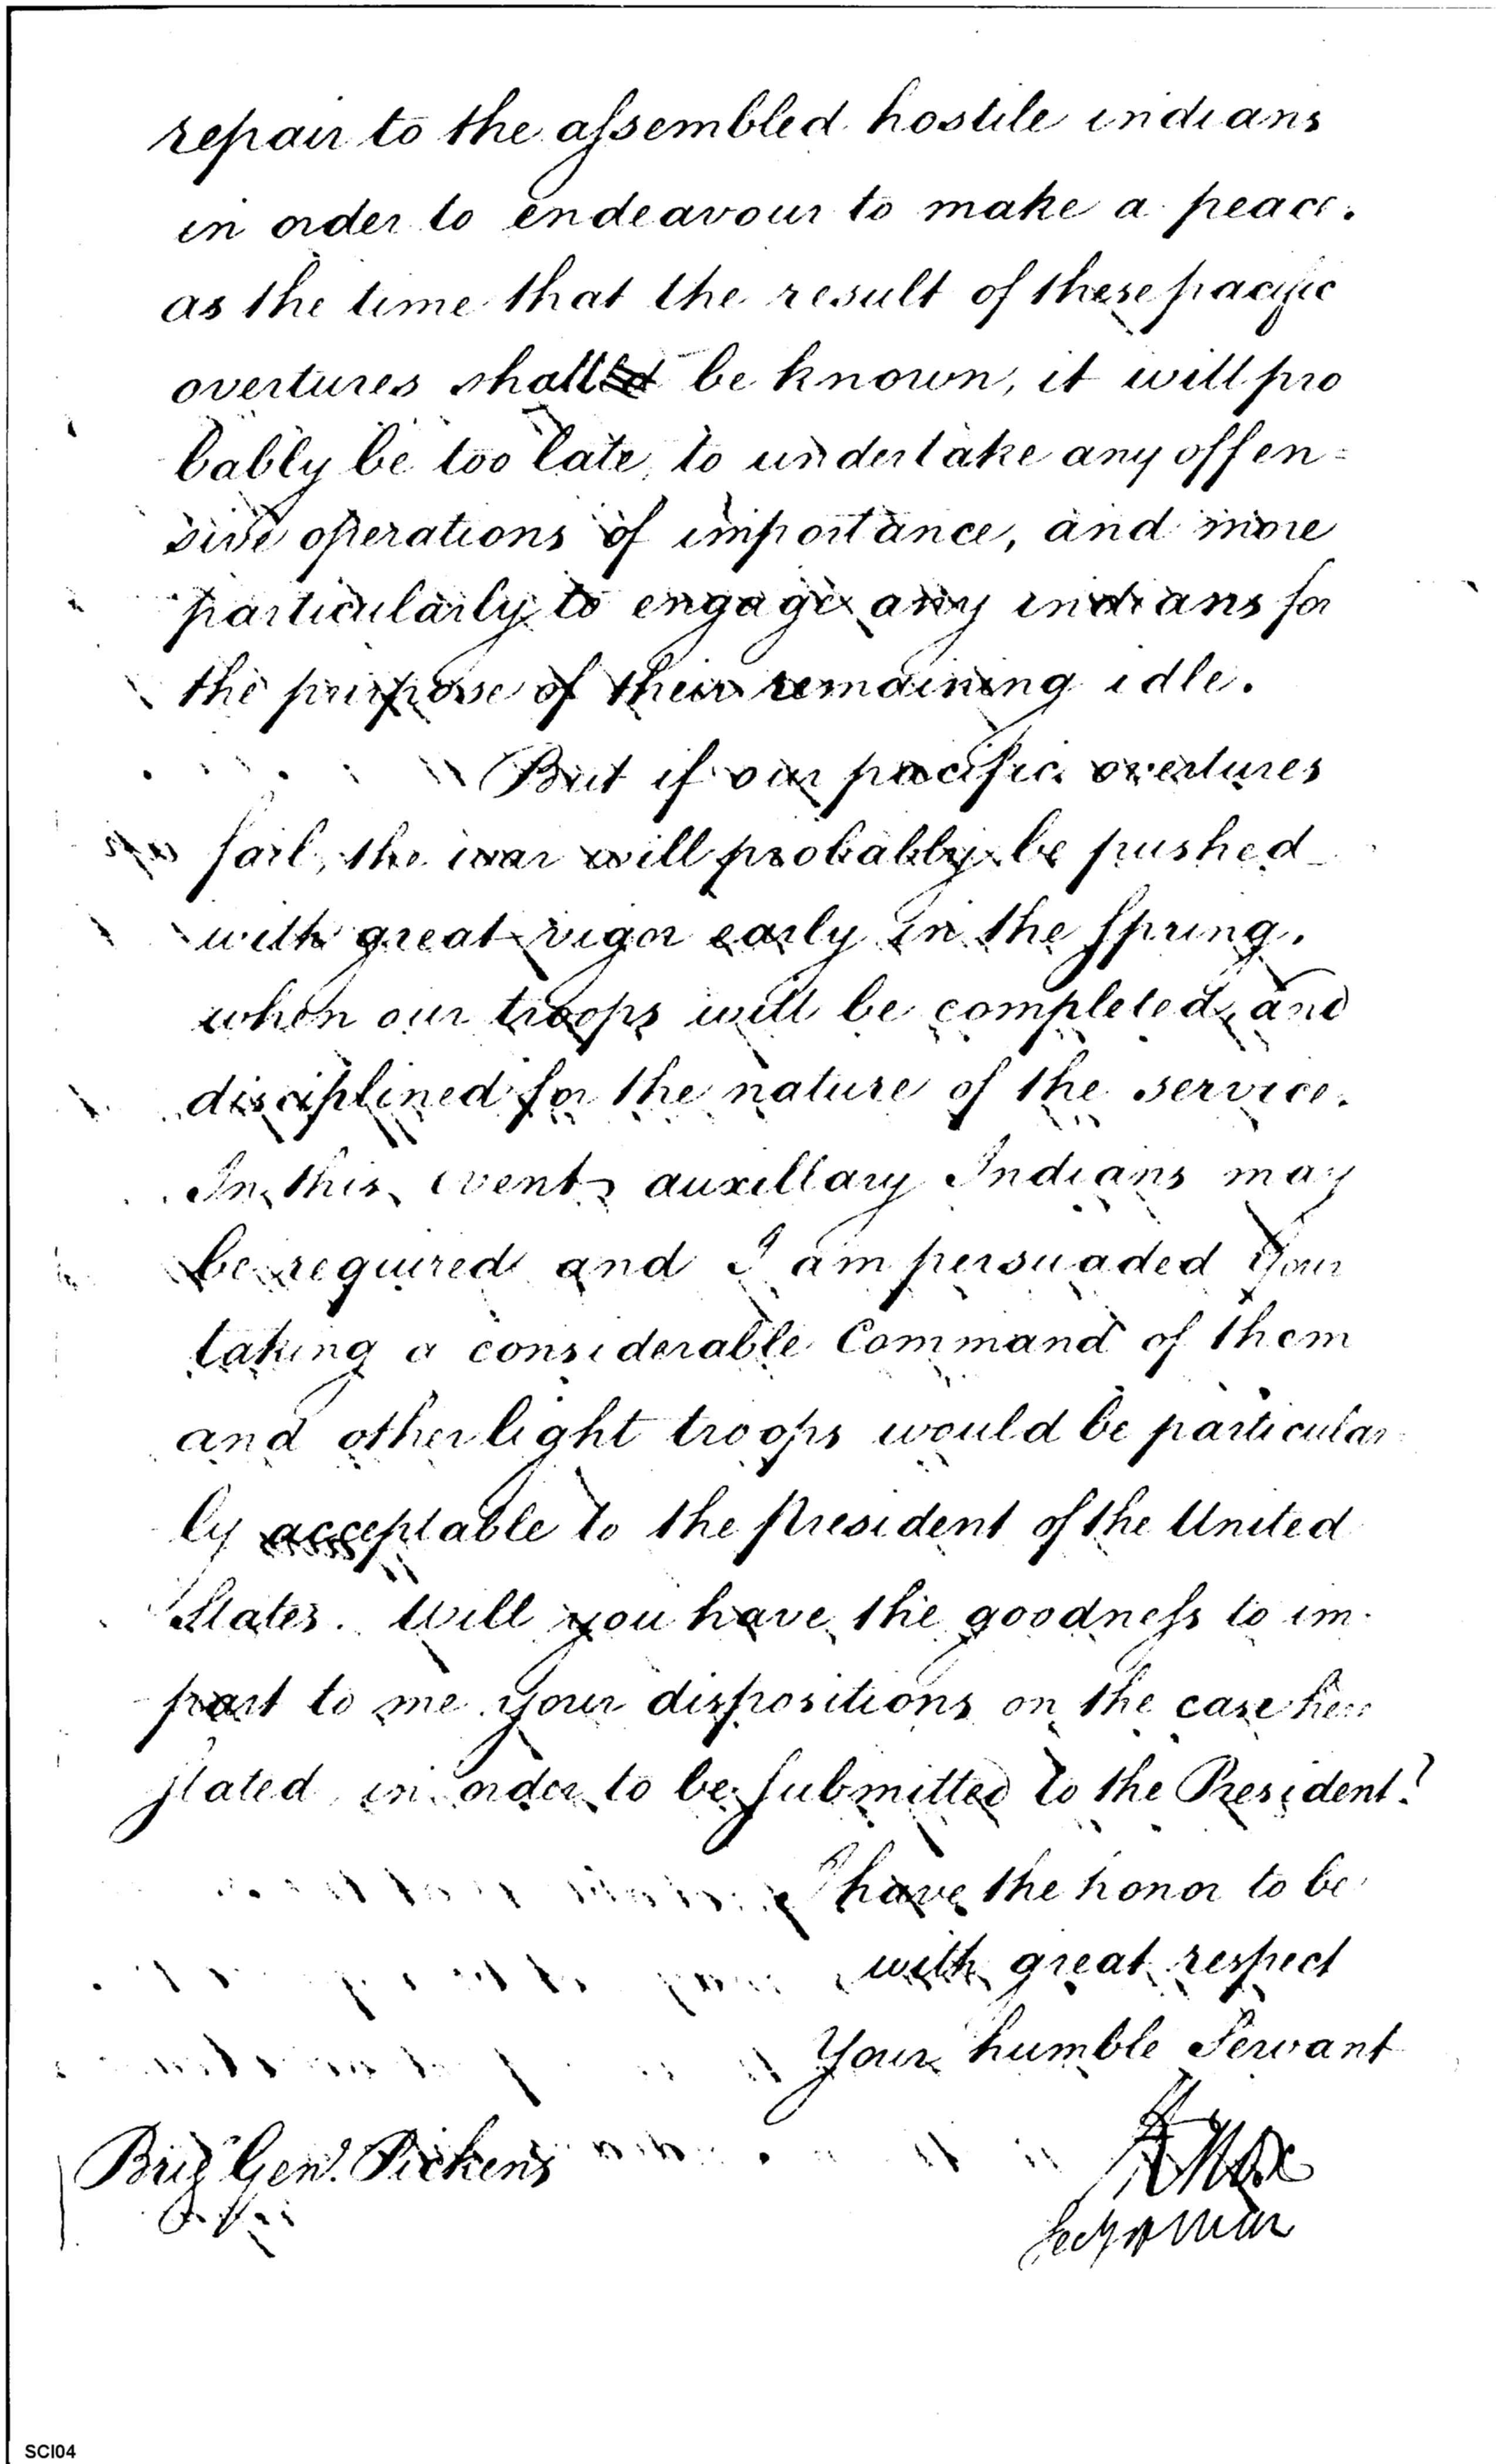 repair to the assembled hostile indians
in order to endeavour to make a peace.
as the time that the result of these pacific
overtures shall be known, it will pro
bably be too late, to undertake any offen=
sive operations of importance, and more
particularly to engage any indians for
the purpose of their remaining idle.
But if our pacific overtures
fail, the war will probably be pushed
with great vigor early in the Spring,
when our troops will be completed, and
disciplined for the nature of the service.
In this event, auxillary Indians may
be required and I am persuaded Your
taking a considerable Command of them
and other light troops would be particular
ly acceptable to the President of the United
States. Will you have the goodness to im-
part to me your dispositions on the case here
stated, in order to be submitted to the President?
I have the honor to be
with great respect
Your humble Servant
HKnox
Secy of War
Brig Genl. Pickens
SCI04